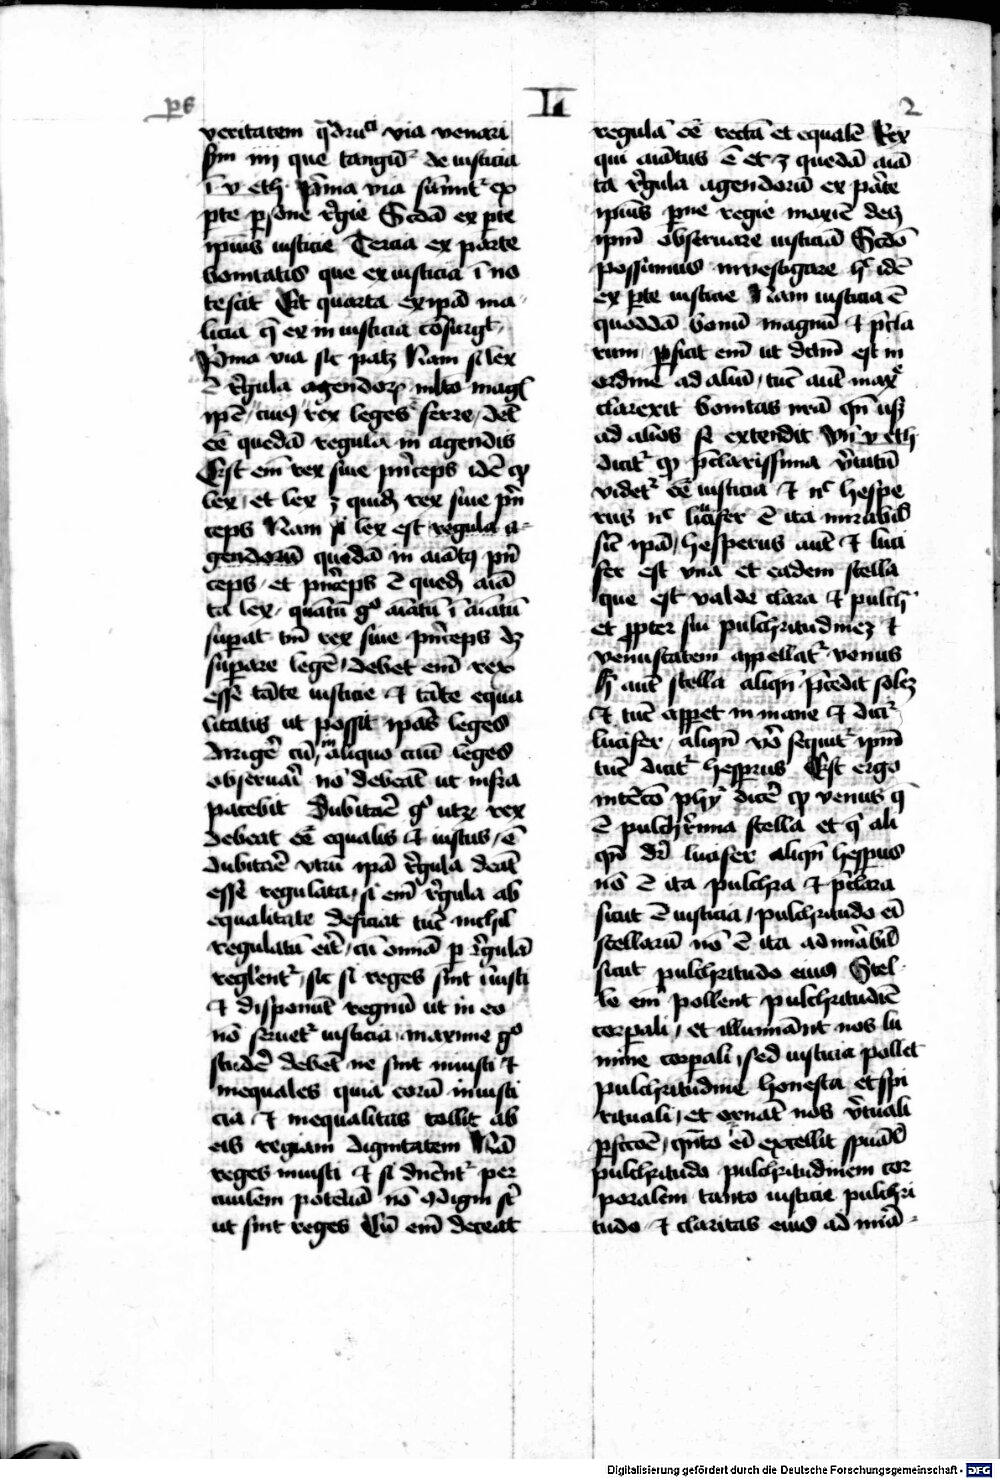 ps
L
2
veritatem q̈dru^ci via venari
Scm iiij que tangūt᷑ de iusticia
ī v eth. P̄ma via sūmit᷑ ex
ꝑte ꝑsone r̄gie Scd̄a ex ꝑte
ipius iusticie Tercia ex parte
bonitatis que ex iusticia ī no
tescit Et quarta ex ipā ma
licia q̄ ex in iusticia cōsurgt᷑
P̄ma via sic patꝫ Nam si lex
ē r̄gula agendoꝝ mlto magꝭ
ipē cuiꝯ rex leges ferre dꝫ
eē quedā regula in agendis
Est em̄ rex siue p̄nceps idē qꝫ
lex et lex ꝫ quidꝫ rex siue p̄n
ceps Nam si lex est regula a
gendorū quedā in aīatꝯ p̄n
ceps et p̄nceps ē quedꝫ aīa
ta lex quātū gͦ aīatū ī aīatū
suꝑat tm̄ rex siue p̄nceps dꝫ
suꝑare legē debet em̄ rex
esse tāte iusticie et tāte equa
litatis ut possit ipās leges
dirigē cū ī aliquo casu leges
obseruari nō debeāt ut infra
patebit Dubitaē gͦ utꝝ rex
debeat eē equalis et iustus ē
dubitaē vtrū ipā r̄gula deat
esse regulata si em̄ r̄gula ab
equalitate deficiat tūc nichil
regulatū eīt cū omia ꝑ r̄gulā
regl'ent᷑ sic si reges sint īiusti
et disponūt regnū ut in eo
nō seruet᷑ iusticia maxime gͦ
studē debēt ne sint iniusti et
inequales quia eorū iniusti
cia et inequalitas tollit ab
eis regiam dignitatem Nā
reges iniusti et si dn̄ent᷑ per
ciuilem potēciā nō digni st̄
ut sint reges Cū em̄ deceat
regulā eē rectā et equalē Rex
qui aīatus ē et ꝫ quedā aīa
ta r̄gula agendorū ex ꝑte
ipius ꝑne regie maxīe decꝫ
ipm̄ obseruare iusticiā Scd̄o
possumus inuestigare h̄ idē
ex ꝑte iusticie Nam iusticia ē
quoddā bonū magnū et p̄cla
rum ꝑficit em̄ ut dctm̄ est in
ordine ad aliū tūc aūt max^e
clarexit bonitas nrā qn̄ usqꝫ
ad alios se extendit vn̄ v eth
dicit᷑ qꝫ p̄clarissima v̄tutū
videt᷑ eē iusticia et nͨ hespe
rus nͨ lucifer ē ita mirabil'
sic ipā hesperus aūt et luci
fer est vna et eadem stella
que est valde clara et pulch^a
et ꝓpter sui pulchritudinē et
venustatem appellat᷑ venus
h̄ aūt stella aliqn̄ p̄cedit solē
et tūc apꝑet in mane et dicit᷑
lucifer aliqn̄ v̄o sequit᷑ ipm̄
tūc dicit᷑ hesꝑus Est ergo
intētō phy dicē qꝫ venus q̄
ē pulchr̄ima stella et q̄ ali
qn̄ dr̄ lucifer aliqn̄ hesꝑus
nō ē ita pulchra et p̄clara
sicut ē iusticia pulchritudo em̄
stellarū nō ē ita admirabil'
sicut pulchritudo eius Stel
le em̄ pollent pulchritudīe
corꝑali et illuminant nos lu
mine corꝑali sed iusticia pollet
pulchritudine honesta et spi
rituali et ornat nos v̄tuali
ꝑfctōe qn̄to em̄ excellit spūal'
pulchritudo pulchritudinem cor
poralem tanto iusticie pulchri
tudo et claritas eius ad mirā
Digitalisierung gefördert durch die Deutsche Forschungsgemeinschaft - DFG